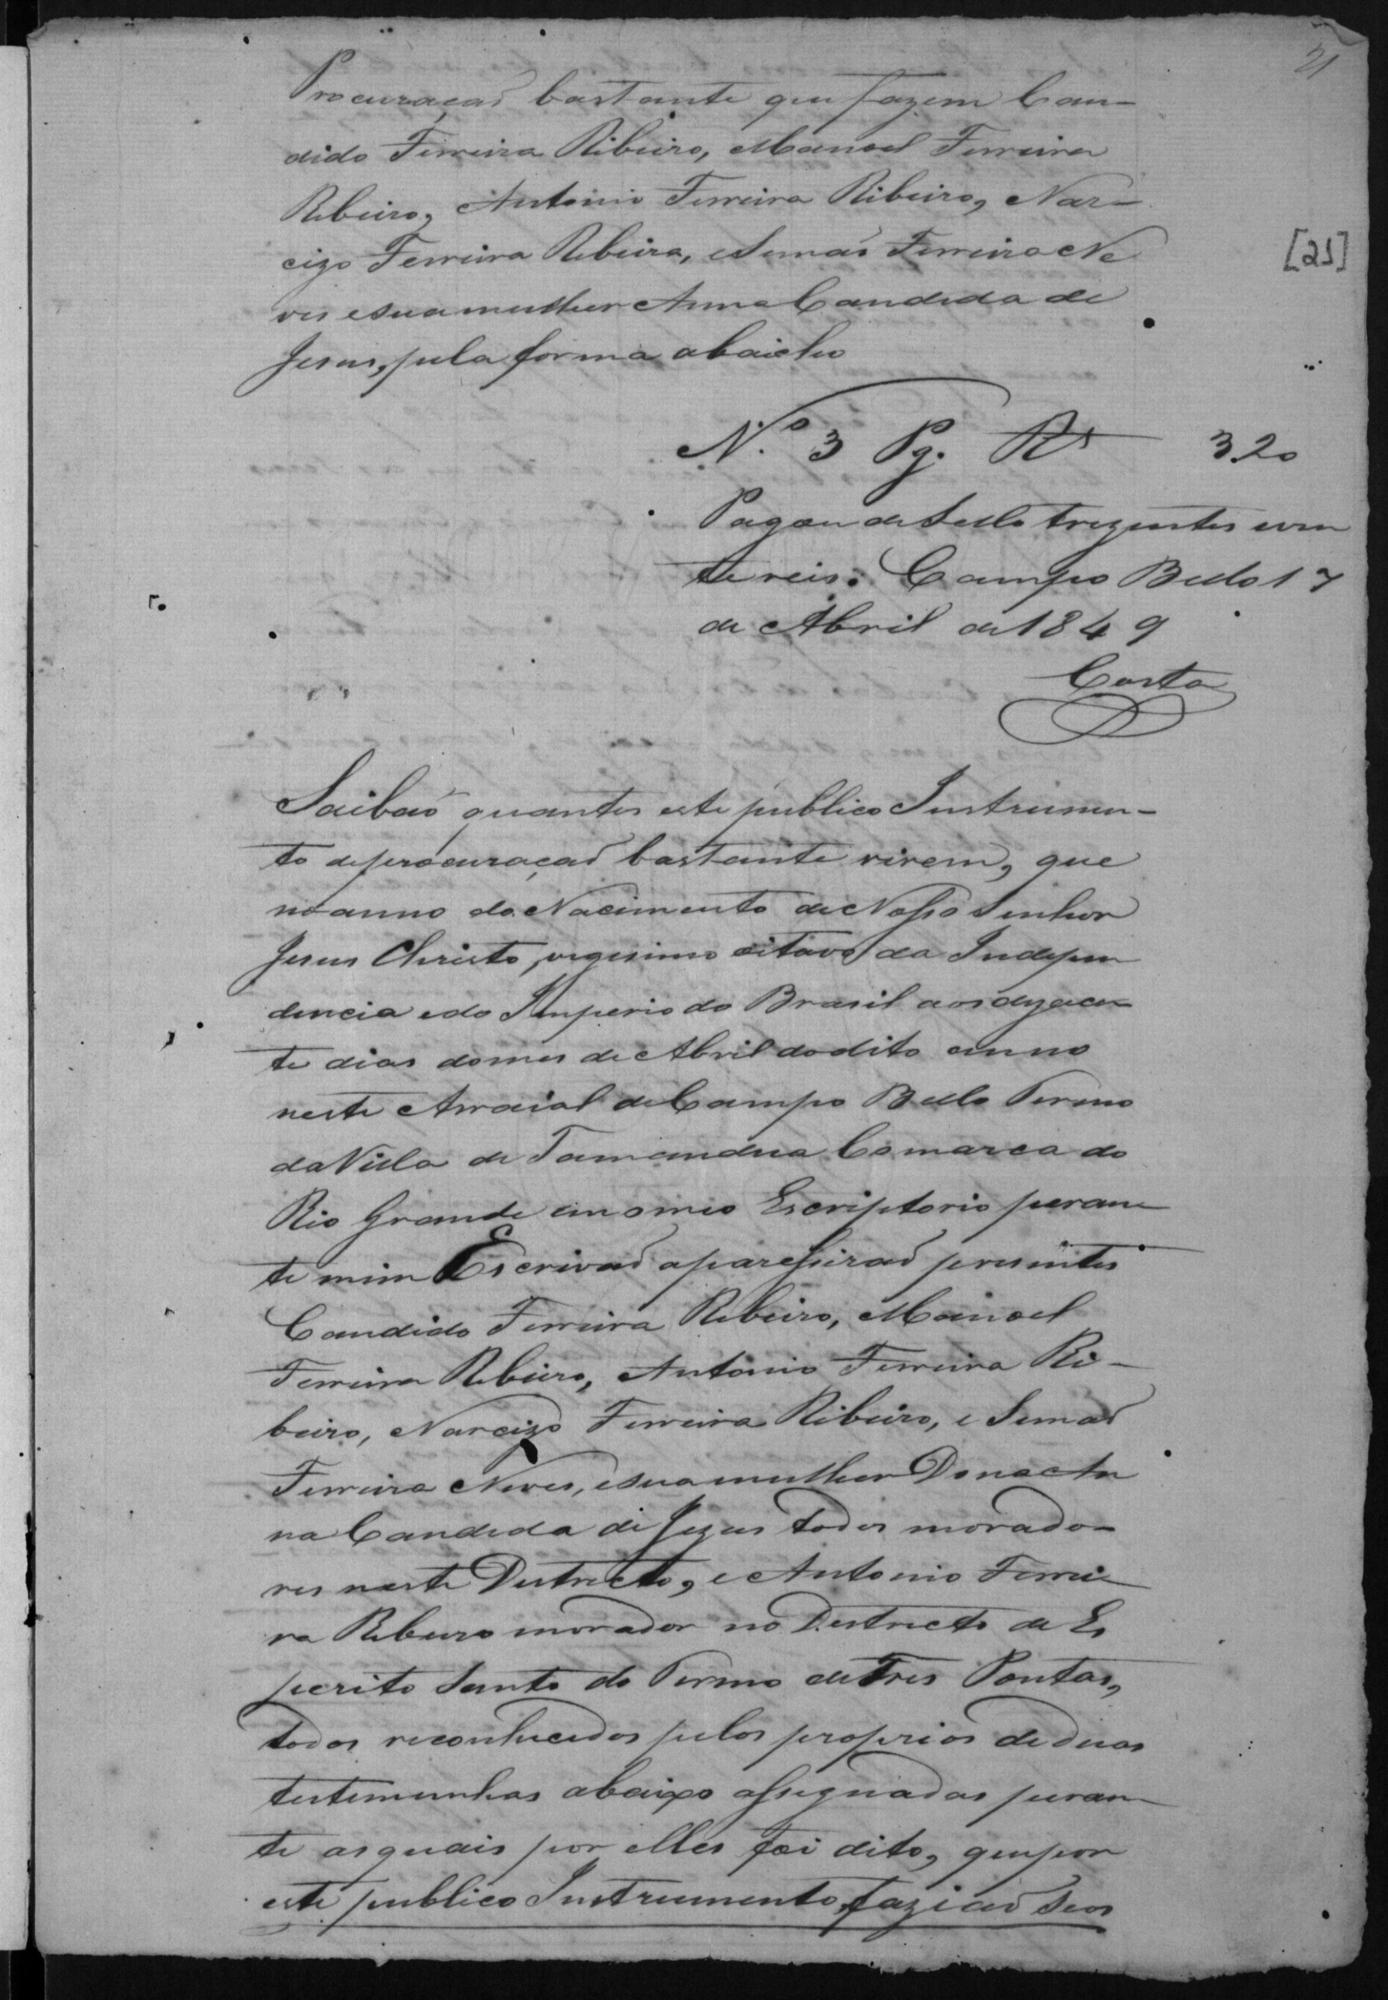 21
Procuraçaõ bastante que fazem Can-
dido Ferreira Ribeiro, Manoel Ferreira
Ribeiro, Antonio Ferreira Ribeiro, Nar-
cizo Ferreira Ribeiro, e Ferreira Ne
ves e sua mulher Anna Candida de
Jesus, pela forma abaicho
[21]
N.º 3 Pg. Rs 320
Pagou de Sello trezentos evin
te reis. Campo Bello 17
de Abril de 1849
Costa
Saibaõ quantos este publico Instrumen-
to de procuraçaõ bastante virem, que
no anno do Nacimento de Nosso Senhor
Jesus Christo, vigesimo oitavo da Indepen
dencia e do Imperio do Brasil aos dezacei
te dias do mes de Abril do dito anno
neste Arraial de Campo Bello Termo
da Villa de Tamandua Comarca do
Rio Grande em o meo Escriptorio peran
te mim Escrivaõ aparesseraõ presentes
Candido Ferreira Ribeiro, Manoel
Ferreira Ribeiro, Antonio Ferreira Ri-
beiro, Narcizo Ferreira Ribeiro, e
Ferreira Neves, e sua mulher Dona An
na Candida de Jezus todos morado-
res neste Destricto, e Antonio Ferrei
ra Ribeiro morador no Destricto de Es
perito Santo do Termo de Tres Pontas,
todos reconhecidos pelos proprios de duas
testemunhas abaixo assignadas peran
te as quais por elles foi dito, que por
este publico Instrumento, faziaõ seos